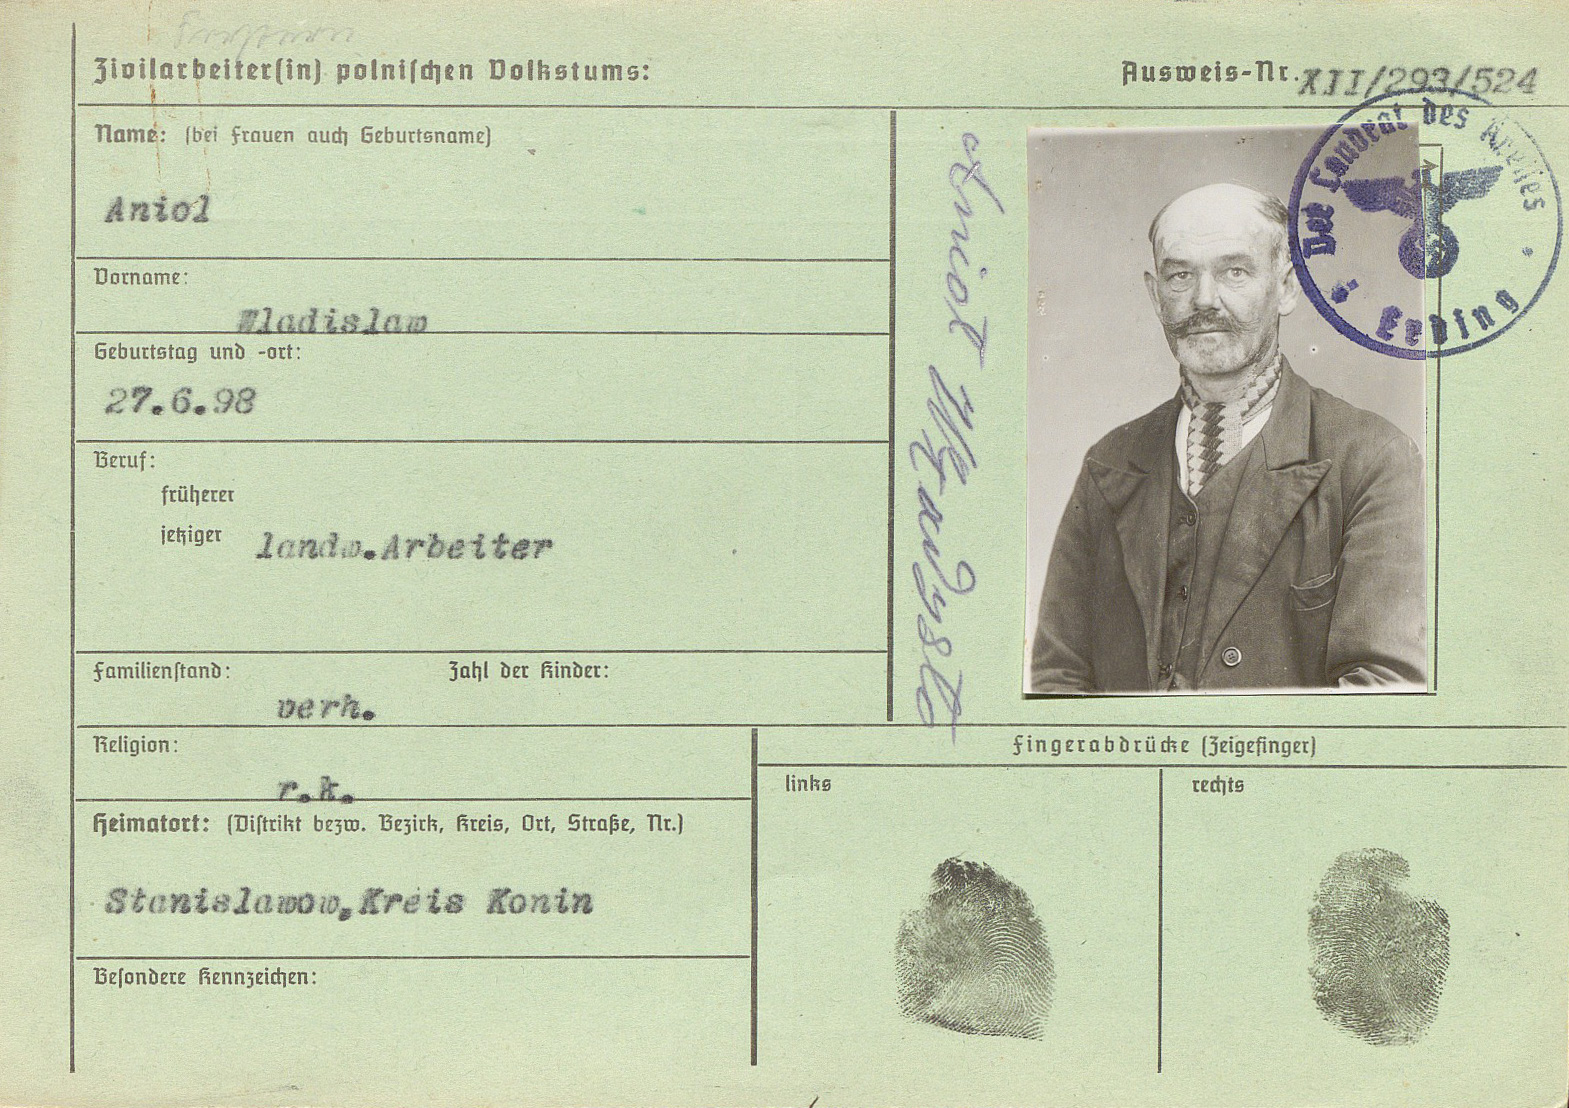 Zivilarbeiter(in) polnischen Volkstums:
Ausweis-Nr. XII/293/524
Name: (bei Frauen auch Geburtsname)
Aniol
Vorname:
Wladislaw
Geburtstag und -ort:
27.6.98
Beruf:
früherer
jetziger landw.Arbeiter
Familienstand: Zahl der Kinder:
verh.
Religion:
r.k.
Heimatort: (Distrikt bezw. Bezirk, Kreis, Ort, Straße, Nr.)
Stanislawow,Kreis Konin
Besondere Kennzeichen:
Aniol
Der Landrat des Kreises
Erding
Fingerabdrücke (Zeigefinger)
links
rechts